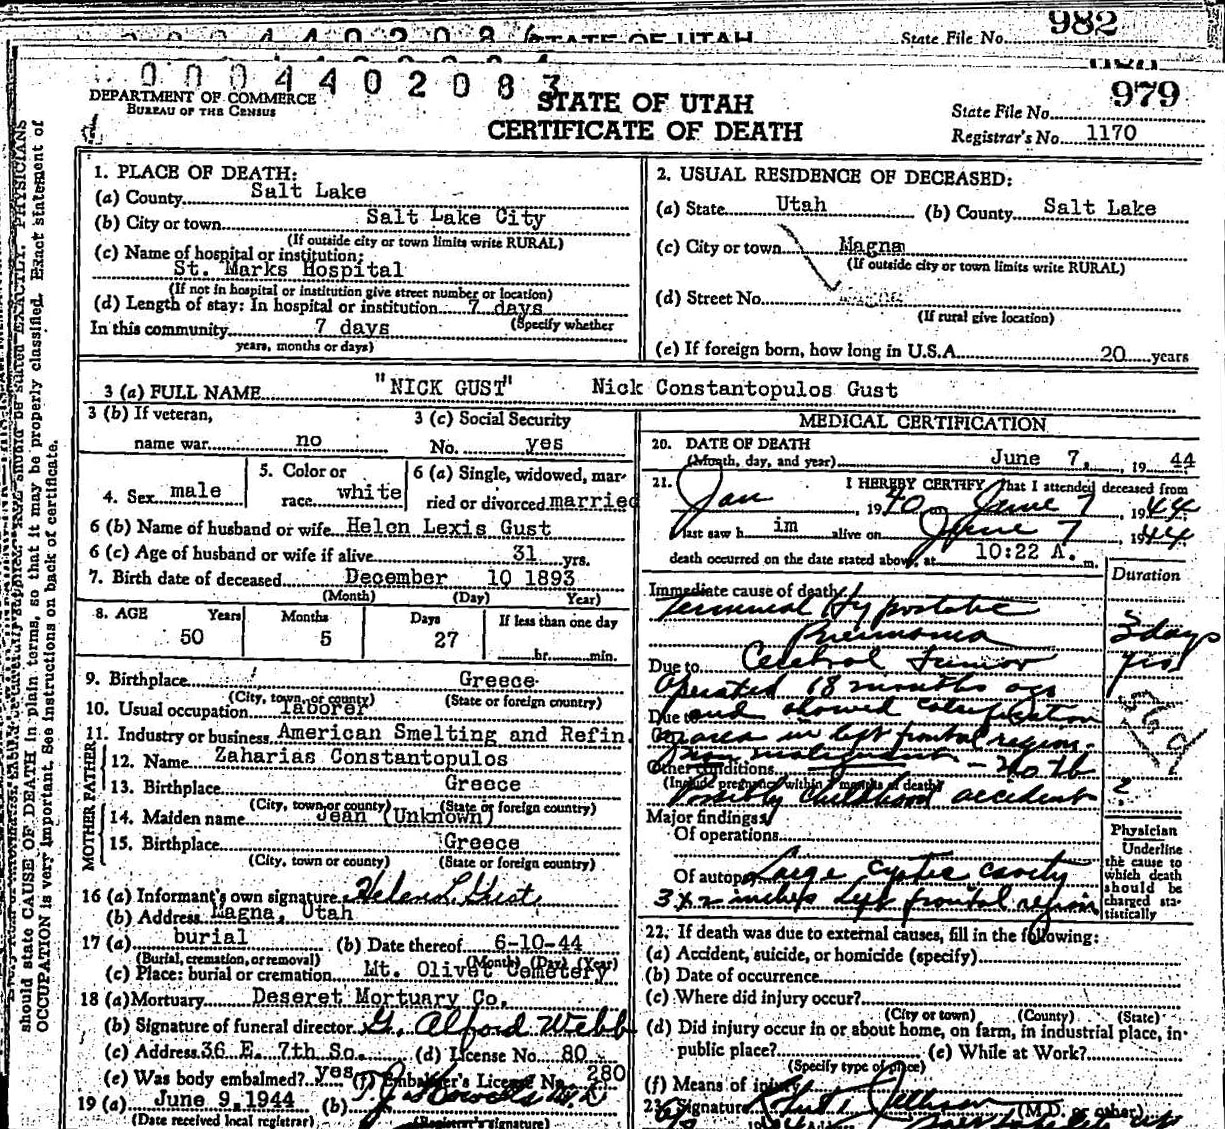 982
STATE OF UTAH
State File No.
0 0 0 4 4 0 2 0 8 3
979
DEPARTMENT OF COMMERCE
BUREAU OF THE CENSUS
STATE OF UTAH
CERTIFICATE OF DEATH
State File No.
Registrar's No. 1170
1. PLACE OF DEATH:
(a) County Salt Lake
(b) City or town Salt Lake City
(If outside city or town limits write RURAL)
(c) Name of hospital or institution:
St. Marks Hospital
(If not in hospital or institution give street number or location)
(d) Length of stay: In hospital or institution 7 days
(Specify whether
In this community 7 days
years, months or days)
2. USUAL RESIDENCE OF DECEASED:
(a) State Utah (b) County Salt Lake
(c) City or town Magna
(If outside city or town limits write RURAL)
(d) Street No.
(If rural give location)
(e) If foreign born, how long in U.S.A. 20 years
3 (a) FULL NAME "NICK GUST" Nick Constantopulos Gust
3 (b) If veteran,
name war no
3 (c) Social Security
No. yes
4. Sex male
5. Color or
race white
6 (a) Single, widowed, mar-
ried or divorced married
6 (b) Name of husband or wife Helen Lexis Gust
6 (c) Age of husband or wife if alive 31 yrs.
7. Birth date of deceased December 10 1893
(Month) (Day) Year)
8. AGE Years Months Days If less than one day
50 5 27 hr. min.
9. Birthplace Greece
(City, town, or county) (State or foreign country)
10. Usual occupation laborer
11. Industry or business American Smelting and Refin.
FATHER
12. Name Zaharias Constantopulos
13. Birthplace Greece
(City, town or county) (State or foreign country)
MOTHER
14. Maiden name Jean (Unknown)
15. Birthplace Greece
(City, town or county) (State or foreign country)
16 (a) Informant's own signature Helen L. Gust
(b) Address Magna, Utah
17 (a) burial (b) Date thereof 6-10-44
(Burial, cremation, or removal) (Month) (Day) (Year)
(c) Place: burial or cremation Mt. Olivet Cemetery
18 (a) Mortuary Deseret Mortuary Co.
(b) Signature of funeral director G. Alford Webb
(c) Address 36 E. 7th So. (d) License No. 80
(e) Was body embalmed? yes (f) Embalmer's License No. 280
19 (a) June 9, 1944 (b)
(Date received local registrar) (Registrar's signature)
MEDICAL CERTIFICATION
20. DATE OF DEATH
(Month, day, and year) June 7, 1944
21. I HEREBY CERTIFY That I attended deceased from
Jan, 1940 June 7, 1944
last saw h im alive on June 7, 1944
death occurred on the date stated above, at 10:22 A. m.
Duration
Immediate cause of death
Terminal Hypostatic
Pneumonia 3 days
Due to Cerebral tumor yrs
Operated 18 months ago
Due to and showed calcification
area in left frontal region.
malignant — no tb
Other conditions
(Include pregnancy within months of death)
Possibly childhood accident ?
Major findings
Of operations
Of autopsy Large cystic cavity
3 x 2 inches left frontal region
Physician
Underline
the cause to
which death
should be
charged sta-
tistically
22. If death was due to external causes, fill in the following:
(a) Accident, suicide, or homicide (specify)
(b) Date of occurrence
(c) Where did injury occur?
(City or town) (County) (State)
(d) Did injury occur in or about home, on farm, in industrial place, in
public place? (e) While at Work?
(Specify type of place)
(f) Means of injury
23. Signature (M.D. or other)
should state CAUSE OF DEATH in plain terms, so that it may be properly classified. Exact statement of
OCCUPATION is very important. See instructions on back of certificate.